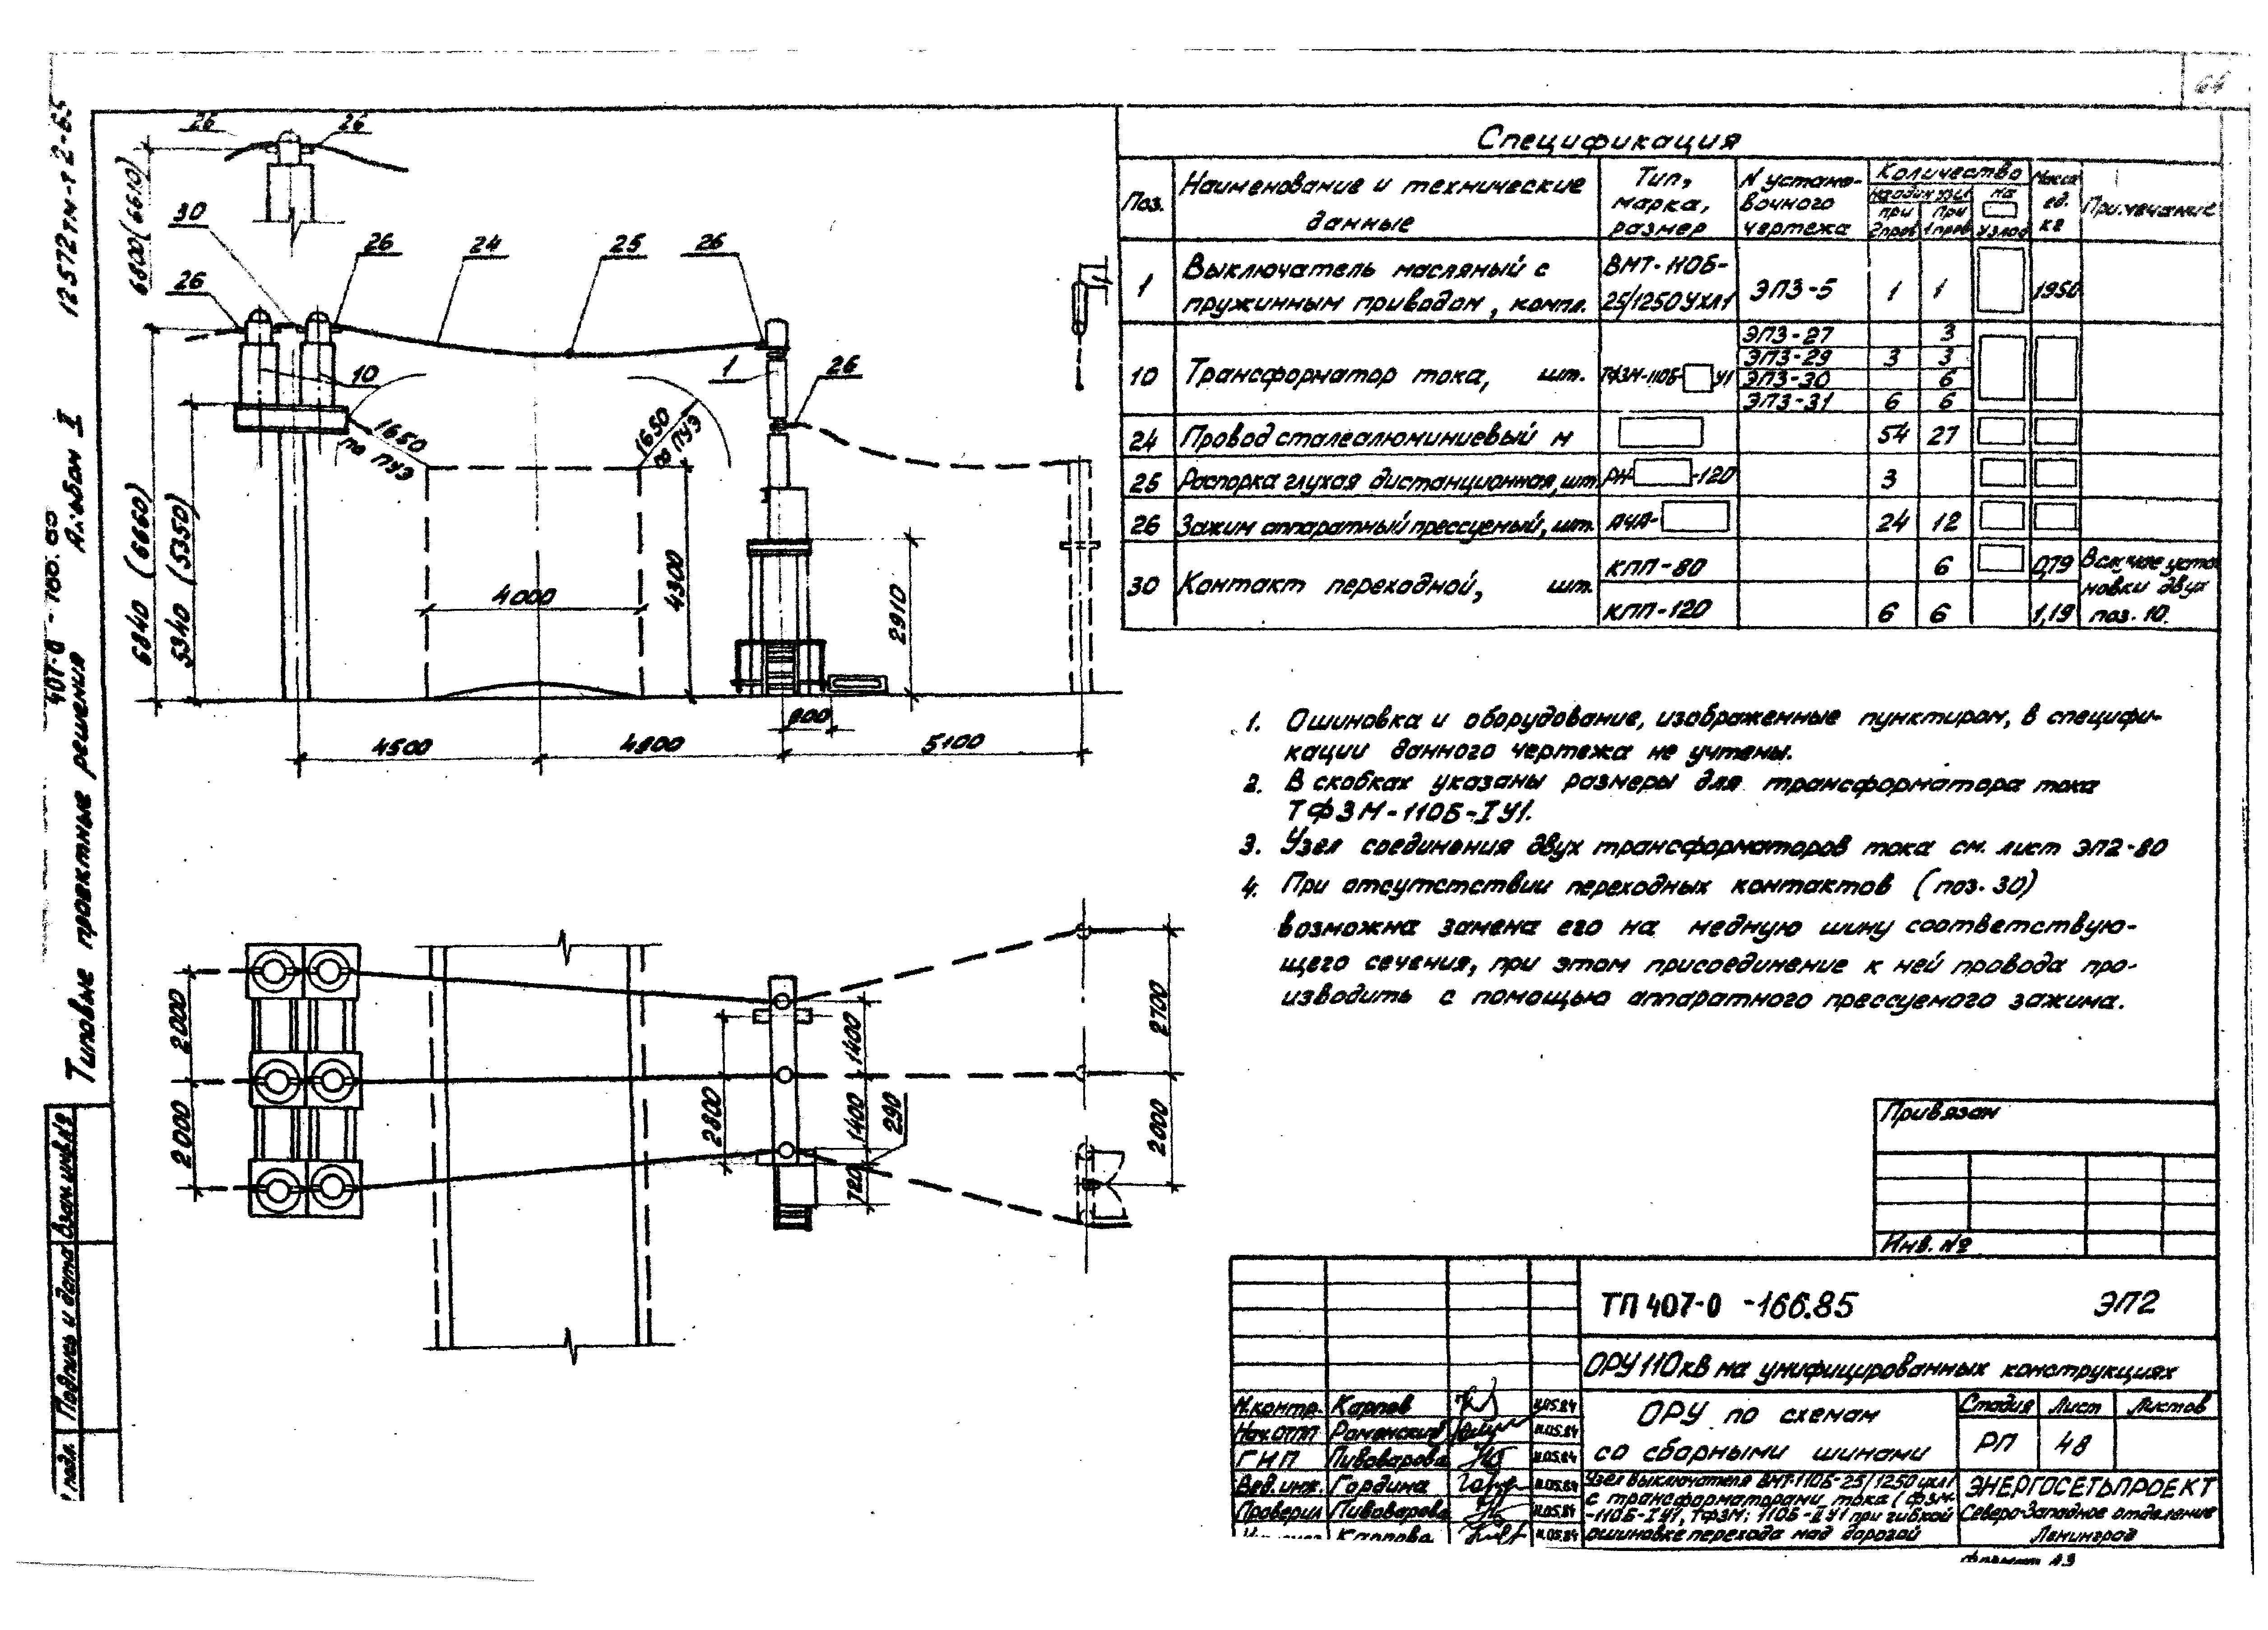 12572тм-т2-65
Альбом I
407-0-166.85
Типовые проектные решения
Взам.инв.№
Подпись и дата
подл.
26
26
6800 (6610)
30
26
24
25
26
26
10
1
26
1650
по ПУЭ
1650
по ПУЭ
6840 (6660)
5340 (5350)
4000
4300
2910
800
4500
4800
5100
2000
2000
2800
1400
1400
290
720
2700
2000
Спецификация
Поз.
Наименование и технические данные
Тип, марка, размер
N установочного чертежа
Количество
на один узел
при 2 пров
при 1 пров
на узлов
Масса ед. кг
Примечание
1 Выключатель масляный с ВМТ-110Б- ЭПЗ-5 1 1 1950
пружинным приводом, компл. 25/1250УХЛ1
ЭПЗ-27 3
ЭПЗ-29 3 3
10 Трансформатор тока, шт. ТФЗМ-110Б- У1 ЭПЗ-30 6
ЭПЗ-31 6 6
24 Провод сталеалюминиевый м 54 27
25 Распорка глухая дистанционная, шт. РГ- -120 3
26 Зажим аппаратный прессуемый, шт. А4А- 24 12
30 Контакт переходной, шт.
КПП-80 6 0,79
КПП-120 6 6 1,19
В случае установки двух
поз. 10.
1. Ошиновка и оборудование, изображенные пунктиром, в специфи-
кации данного чертежа не учтены.
2. В скобках указаны размеры для трансформатора тока
ТФЗМ-110Б-IУ1.
3. Узел соединения двух трансформаторов тока см. лист ЭП2-80
4. При отсутствии переходных контактов (поз. 30)
возможна замена его на медную шину соответствую-
щего сечения, при этом присоединение к ней провода про-
изводить с помощью аппаратного прессуемого зажима.
Привязан
Инв. №
ТП 407-0-166.85 ЭП2
ОРУ 110кВ на унифицированных конструкциях
ОРУ по схемам
со сборными шинами
Стадия Лист Листов
РП 48
Н.контр. Карпов 11.05.84
Нач.ОТП Роменский 11.05.84
ГИП Пивоварова 11.05.84
Вед.инж. Гордина 11.05.84
Проверил Пивоварова 11.05.84
Карпова 11.05.84
Узел выключателя ВМТ-110Б-25/1250 УХЛ1
с трансформаторами тока (ТФЗМ-
-110Б-IУ1, ТФЗМ-110Б-IIУ1 при гибкой
ошиновке перехода над дорогой
ЭНЕРГОСЕТЬПРОЕКТ
Северо-Западное отделение
Ленинград
формат А3